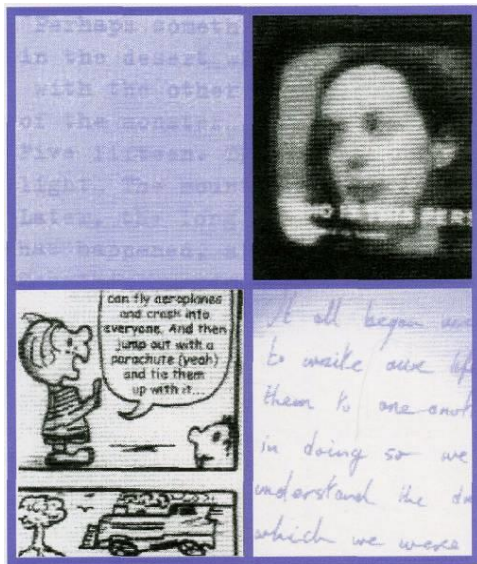 Perhaps someth
in the desert
with the other
of the monster
Five fifteen. T
light. The moun
Later, the long
hat happened, a
can fly aeroplanes
and crash into
everyone. And then
jump out with a
parachute (yeah)
and tie them
up with it...
It all began
to write our
them to one anot
in doing so we
understand the
which we were